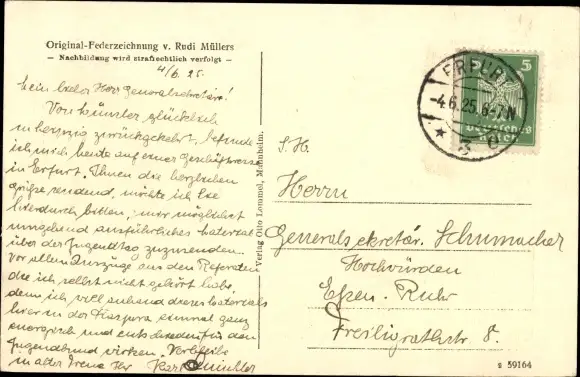 Original-Federzeichnung v. Rudi Müllers
— Nachbildung wird strafrechtlich verfolgt —
4/6. 25.
Mein lieber Herr Generalsekretär!
Von Münster glücklich
zurückgekehrt, befinde
ich mich heute auf einer Geschäftsreise
in Erfurt. Ihnen die herzlichen
Grüße sendend, möchte ich Sie
hierdurch bitten, mir möglichst
umgehend ausführliches Material
über der Jugendtag zuzusenden.
Vor allem Auszüge aus den Referaten
die ich selbst nicht gehört habe,
denn ich will anhand dieses Materials
hier in der Diaspora einmal ganz
energisch und entschieden für den
Jugendbund wirken. Verbleibe
in alter Treue Ihr Karl
Verlag Otto Lommel, Mannheim.
ERFURT
4.6.25.6-7N
* 3
5 5
Deutsches
Reich
S. H.
Herrn
Generalsekretär. Schumacher
Hochwürden
Essen. Ruhr
Freiligrathstr 8.
s 59164